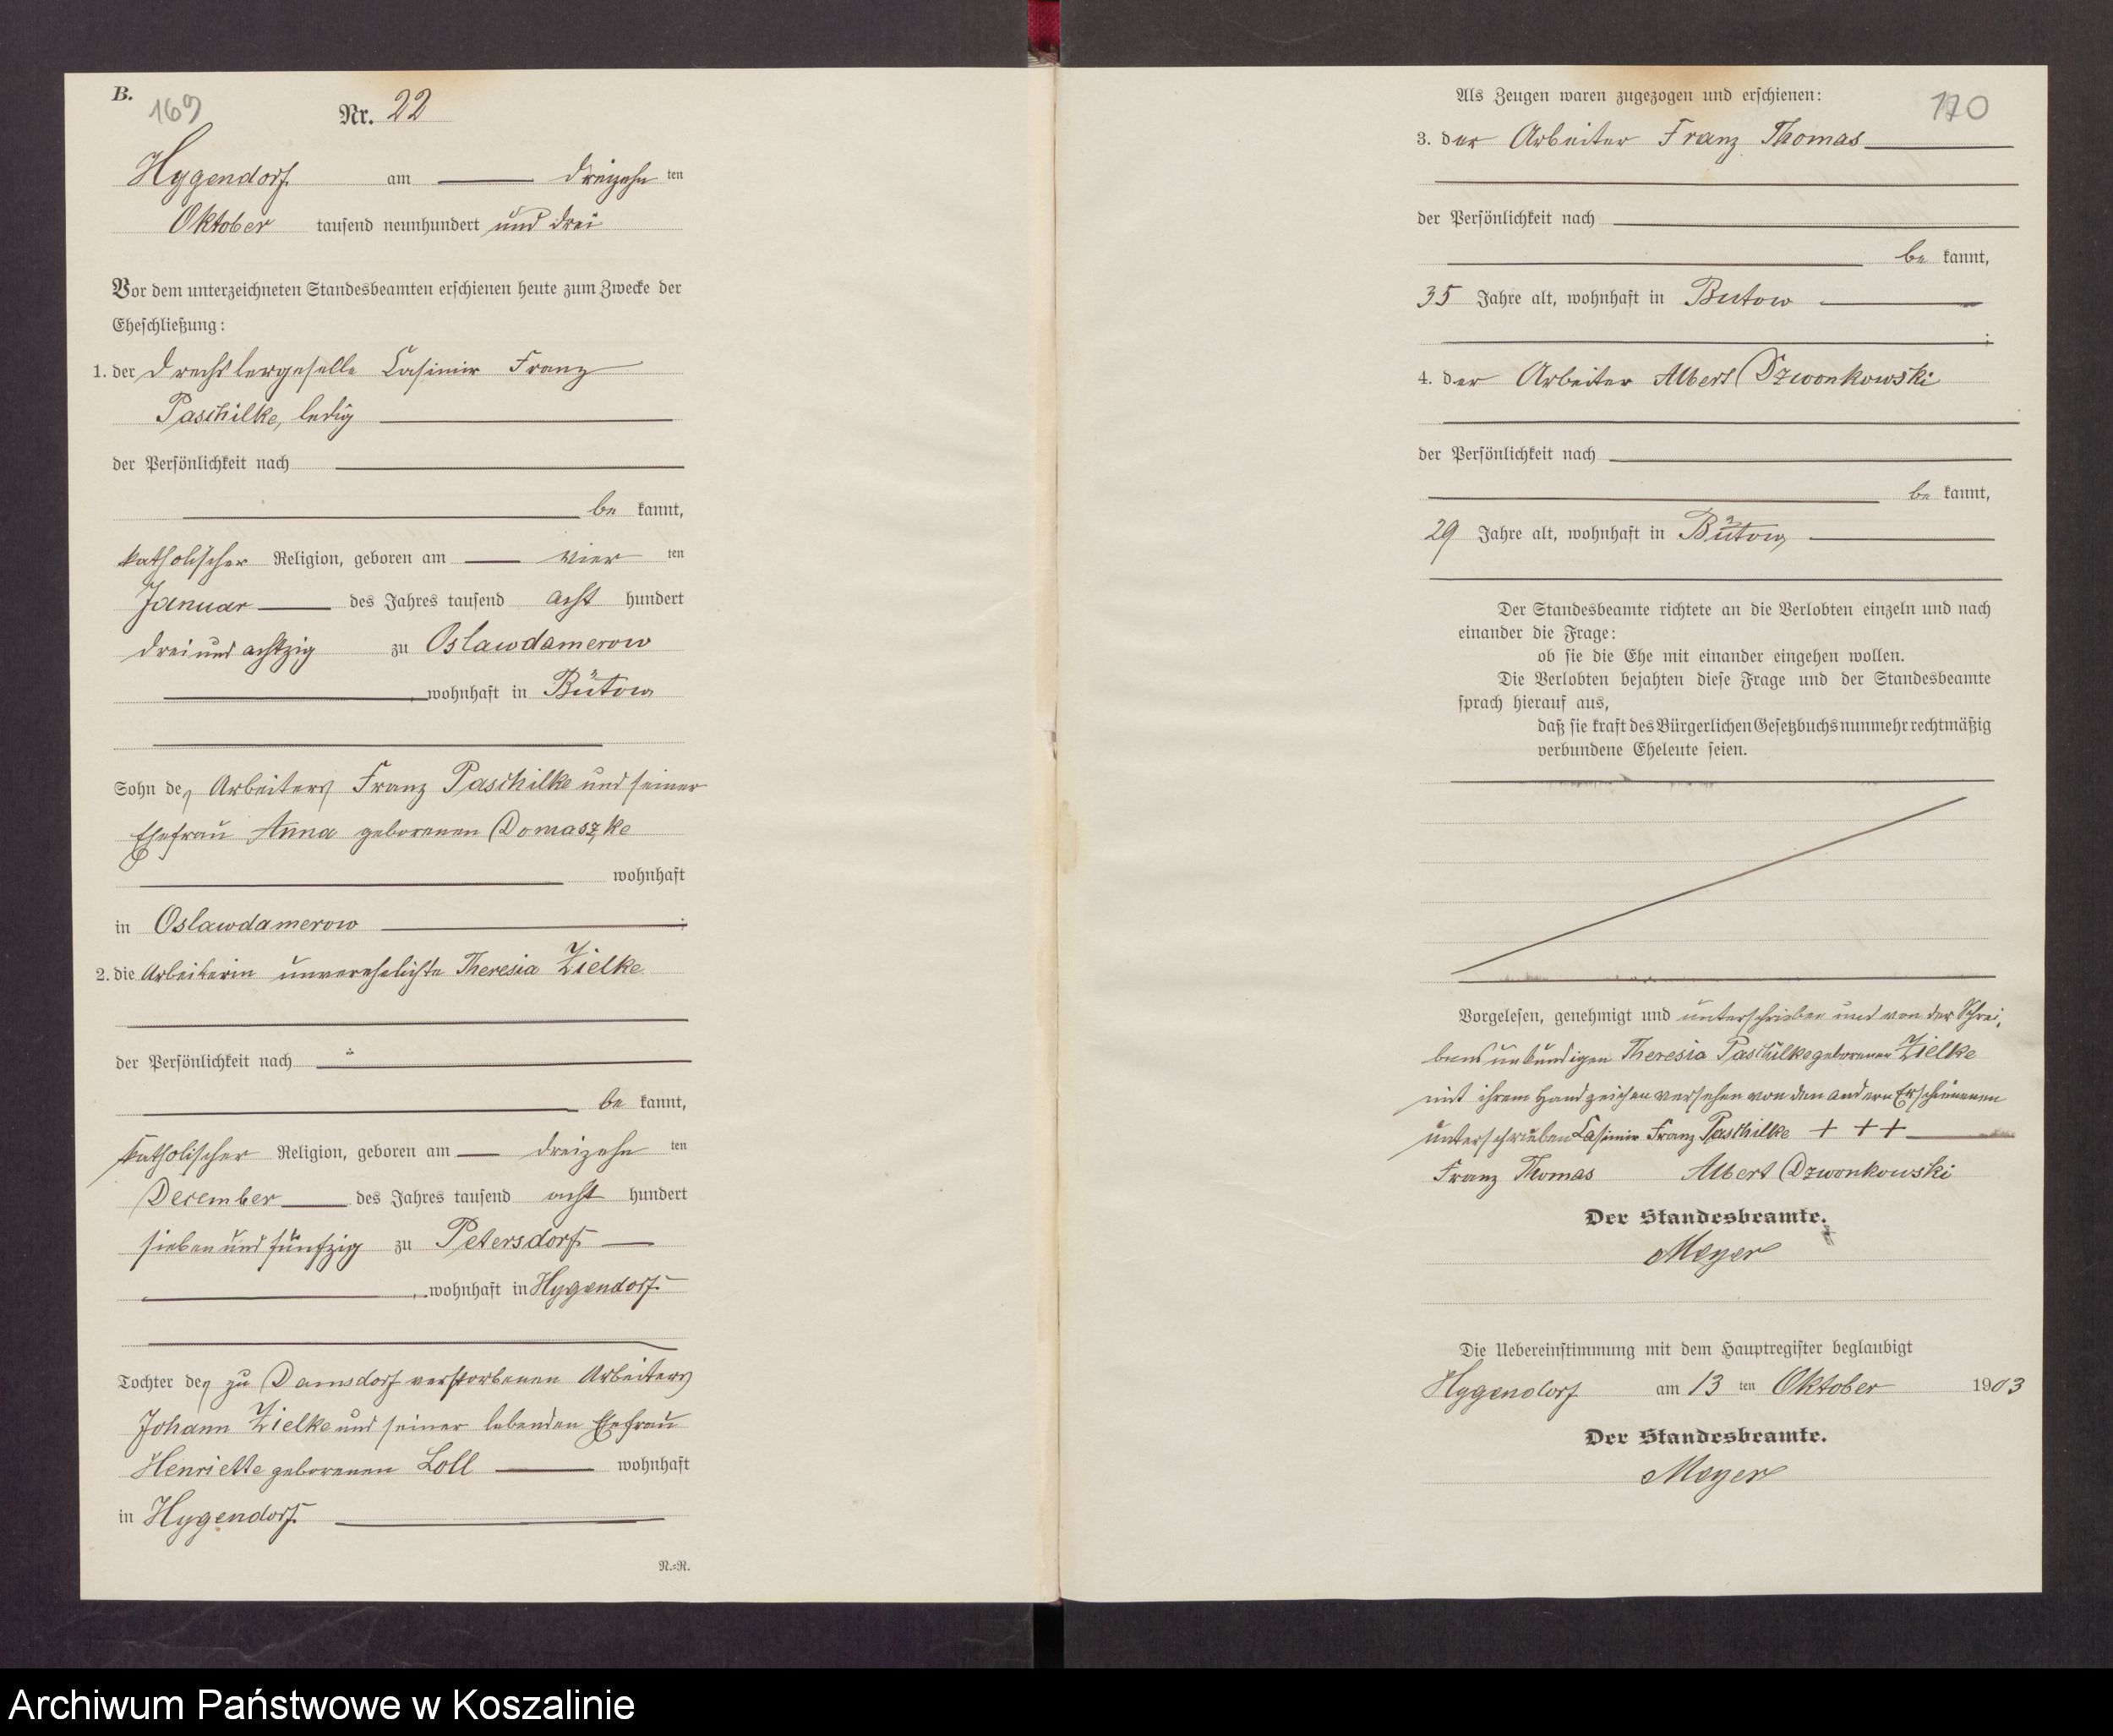 B.
169
Nr. 22
Hygendorf am dreizehn ten
Oktober tausend neunhundert und drei
Vor dem unterzeichneten Standesbeamten erschienen heute zum Zwecke der
Eheschließung:
1. der Drechslergeselle Casimir Franz
Paschilke, ledig
der Persönlichkeit nach
be kannt,
katholischer Religion, geboren am vier ten
Januar des Jahres tausend acht hundert
drei und achtzig zu Oslawdamerow
, wohnhaft in Bütow
Sohn des Arbeiters Franz Paschilke und seiner
Ehefrau Anna geborenen Domaszke
wohnhaft
in Oslawdamerow ;
2. die Arbeiterin unverehelichte Theresia Zielke
der Persönlichkeit nach
be kannt,
katholischer Religion, geboren am dreizehn ten
Dezember des Jahres tausend acht hundert
sieben und fünfzig zu Petersdorf
, wohnhaft in Hygendorf
Tochter des zu Damsdorf verstorbenen Arbeiters
Johann Zielke und seiner lebenden Ehefrau
Henriette geborenen Loll wohnhaft
in Hygendorf
N.-R.
Als Zeugen waren zugezogen und erschienen:
170
3. der Arbeiter Franz Thomas
der Persönlichkeit nach
be kannt,
35 Jahre alt, wohnhaft in Butow
;
4. der Arbeiter Albert Dzwonkowski
der Persönlichkeit nach
be kannt,
29 Jahre alt, wohnhaft in Bütow
Der Standesbeamte richtete an die Verlobten einzeln und nach
einander die Frage:
ob sie die Ehe mit einander eingehen wollen.
Die Verlobten bejahten diese Frage und der Standesbeamte
sprach hierauf aus,
daß sie kraft des Bürgerlichen Gesetzbuchs nunmehr rechtmäßig
verbundene Eheleute seien.
Vorgelesen, genehmigt und unterschrieben und von der Schrei-
bensunkundigen Theresia Paschilke geborenen Zielke
mit ihrem Handzeichen versehen von den andern Erschienenen
unterschrieben Casimir Franz Paschilke + + +
Franz Thomas Albert Dzwonkowski
Der Standesbeamte.
Meyer
Die Uebereinstimmung mit dem Hauptregister beglaubigt
Hygendorf am 13 ten Oktober 1903
Der Standesbeamte.
Meyer
Archiwum Państwowe w Koszalinie